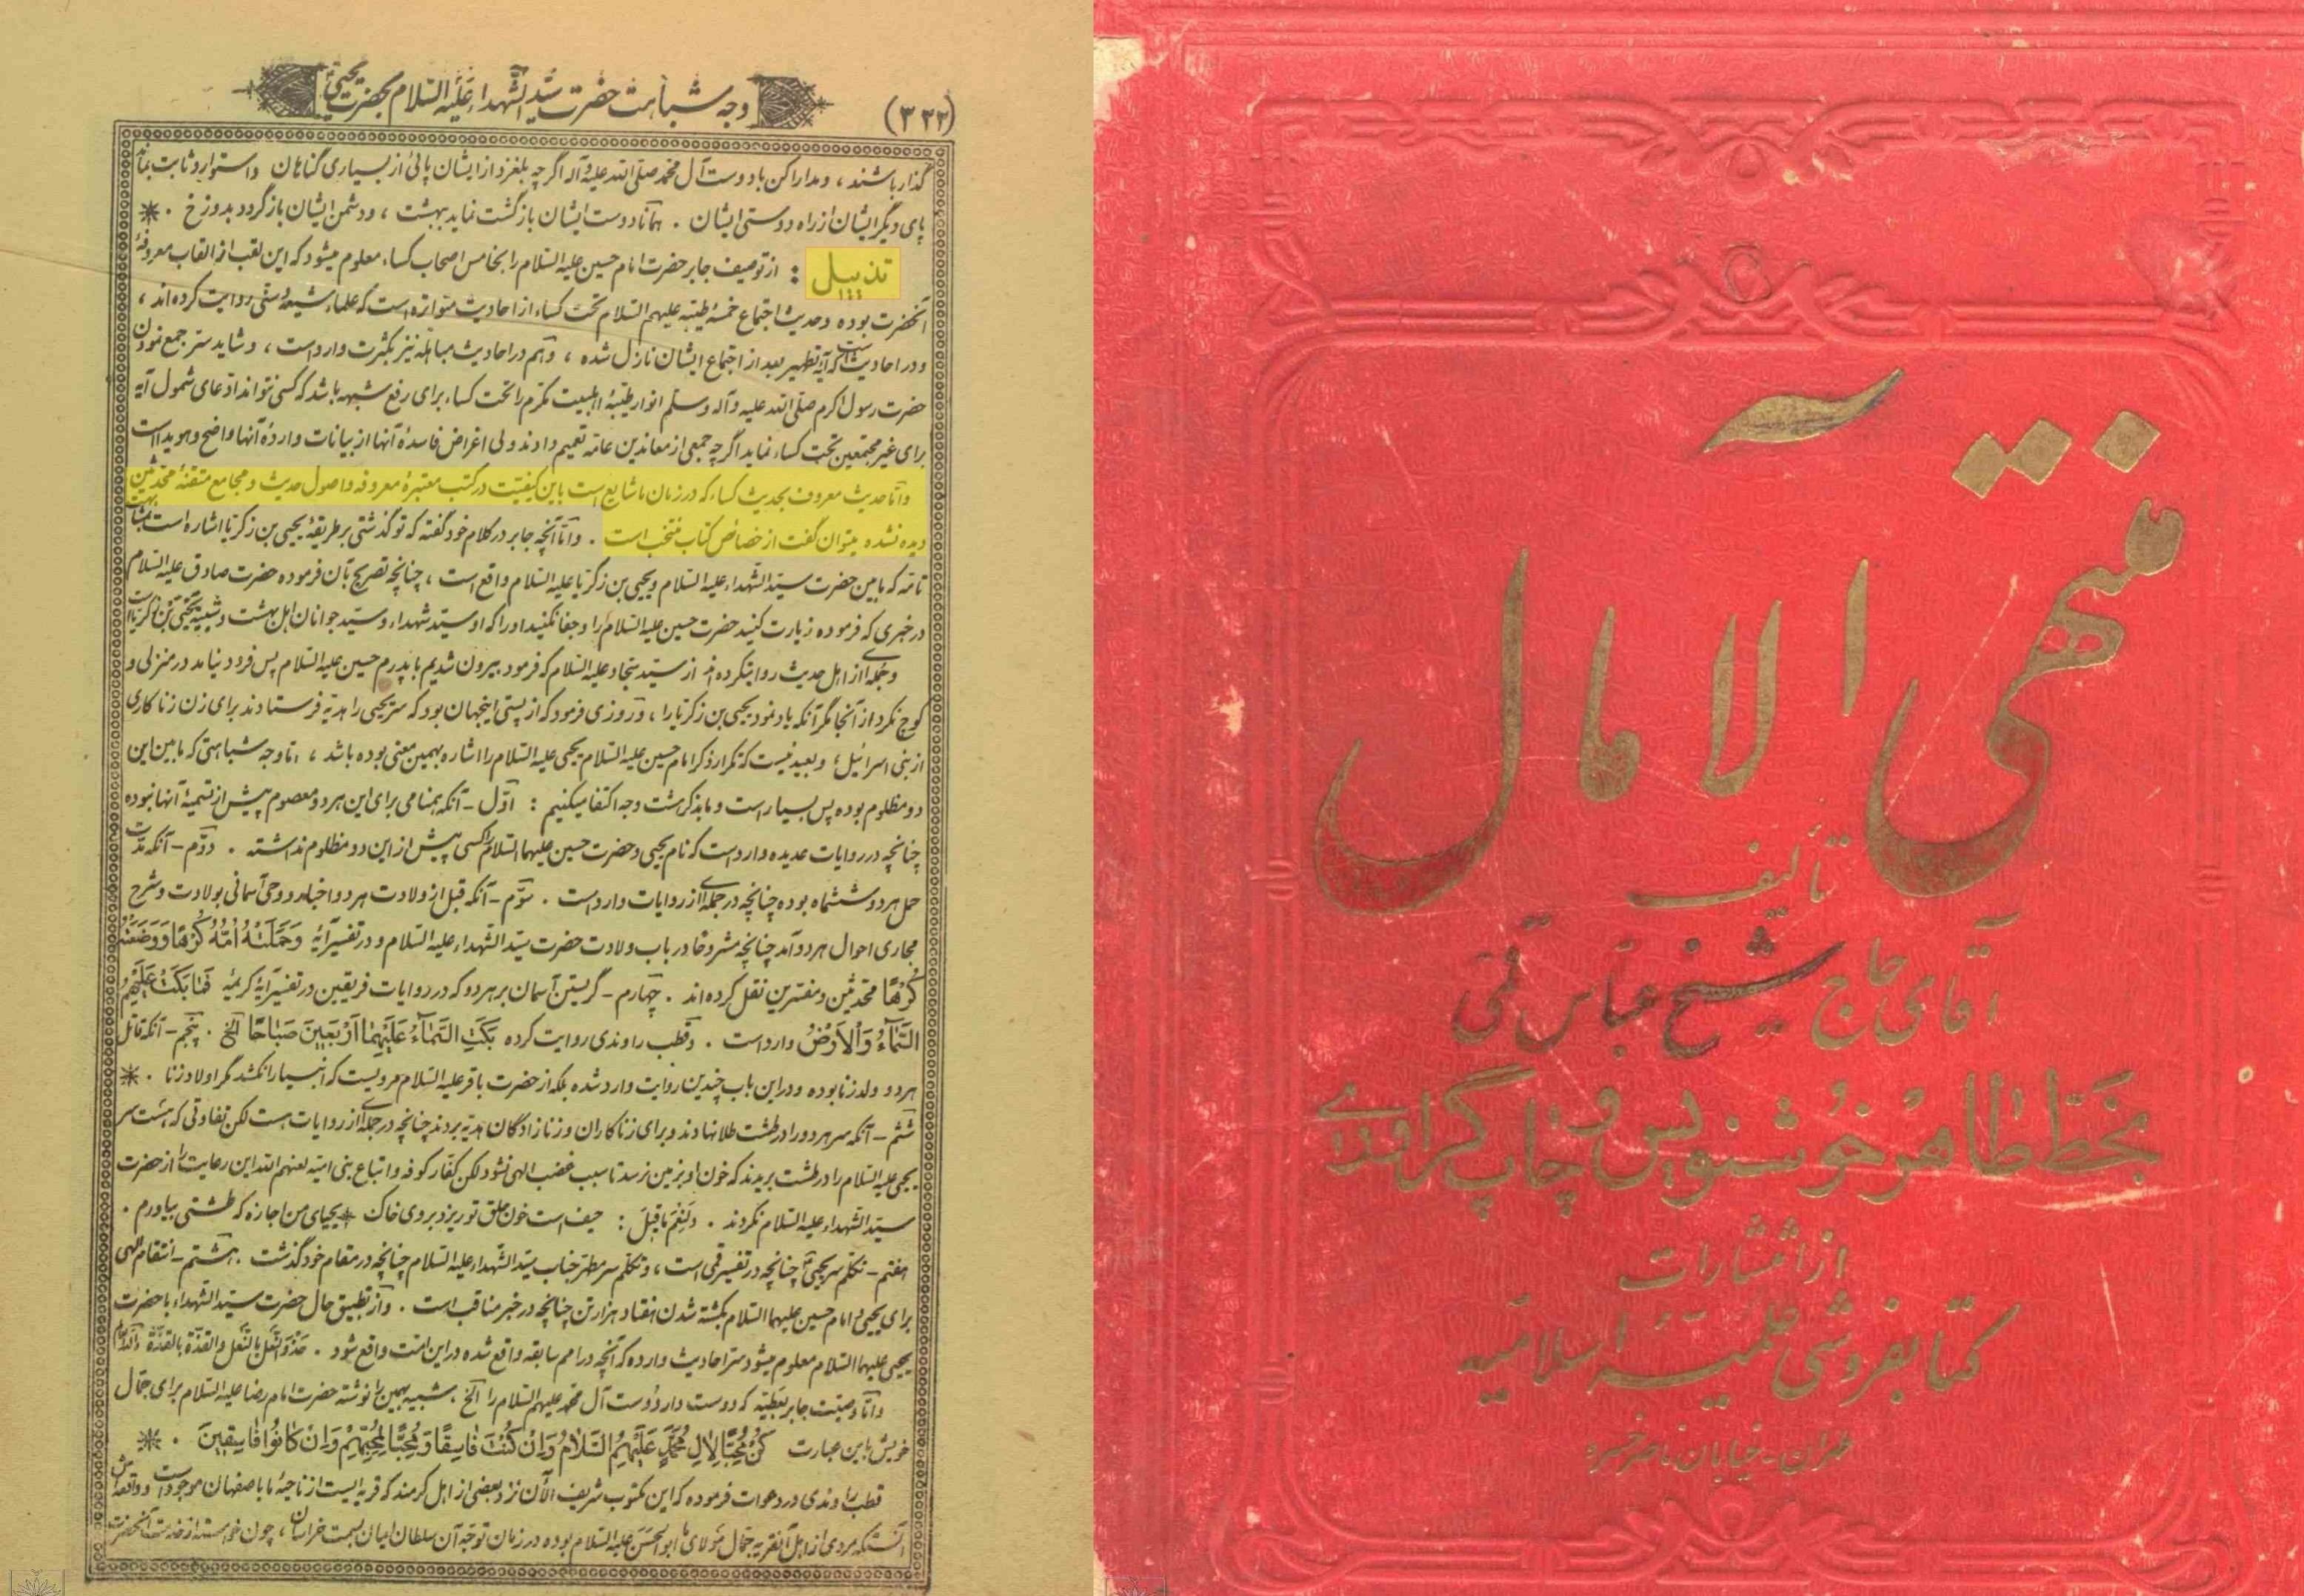 (۳۳۲)
وجه شباهت حضرت سیّد الشّهداء علیه السّلام بحضرت یحیی
گذار باشند ، و مدارا کن با دوست آل محمّد صلّی الله علیه و آله اگر چه بلغزد از ایشان پائی از بسیاری گناهان و استوار و ثابت بماند
پای دیگر ایشان از راه دوستی ایشان . همانا دوست ایشان بازگشت نماید ببهشت ، و دشمن ایشان بازگردد بدوزخ . *
تذییل : از توصیف جابر حضرت امام حسین علیه السّلام را بخامس اصحاب کساء معلوم میشود که این لقب از القاب معروفهٔ
آنحضرت بوده و حدیث اجتماع خمسهٔ طیّبه علیهم السّلام تحت کساء از احادیث متواتره است که علماء شیعه و سنّی روایت کرده‌اند ،
و در احادیث است که آیهٔ تطهیر بعد از اجتماع ایشان نازل شده ، و آنهم در احادیث مباهله نیز بکثرت وارد است ، و شاید سرّ جمع نمودن
حضرت رسول اکرم صلّی الله علیه و آله و سلّم انوار طیّبهٔ اهلبیت مکرّم را تحت کساء برای رفع شبهه باشد که کسی نتواند ادّعای شمول آیه
برای غیر مجتمعین تحت کساء نماید اگر چه جمعی از معاندین عامّه تعمیم دادند ولی اغراض فاسدهٔ آنها از بیانات واردهٔ آنها واضح و هویدا است
و امّا حدیث معروف بحدیث کساء که در زمان ما شایع است باین کیفیّت در کتب معتبرهٔ معروفه و اصول حدیث و مجامع متقنهٔ محدّثین
دیده نشده میتوان گفت از خصائص کتاب منتخب است . و امّا آنچه جابر در کلام خود گفته که تو گذشتی بر طریقهٔ یحیی بن زکریّا اشاره است بمشابهت
تامّه که مابین حضرت سیّد الشّهداء علیه السّلام و یحیی بن زکریّا علیه السّلام واقع است ، چنانچه تصریح بآن فرموده حضرت صادق علیه السّلام
در خبری که فرموده زیارت کنید حضرت حسین علیه السّلام را و جفا نکنید او را که او سیّد شهداء و سیّد جوانان اهل بهشت و شبیه یحیی بن زکریّا است
و جمله‌ای از اهل حدیث روایت کرده‌اند از سیّد سجّاد علیه السّلام که فرمود بیرون شدیم با پدرم حسین علیه السّلام پس فرود نیامد در منزلی و
کوچ نکرد از آنجا مگر آنکه یاد نمود یحیی بن زکریّا را ، و روزی فرمود که از پستی اینجهان بود که سر یحیی را هدیه فرستادند برای زن زناکاری
از بنی اسرائیل ، و بعید نیست که تکرار ذکر امام حسین علیه السّلام یحیی علیه السّلام را اشاره بهمین معنی بوده باشد ، امّا وجه شباهتی که مابین این
دو مظلوم بوده پس بسیار است و ما بذکر هشت وجه اکتفا میکنیم : اوّل - آنکه همنامی برای این هر دو معصوم پیش از تسمیهٔ آنها نبوده
چنانچه در روایات عدیده وارد است که نام یحیی و حضرت حسین علیهما السّلام را کسی پیش از این دو مظلوم نداشته . دوّم - آنکه مدّت
حمل هر دو ششماه بوده چنانچه در جمله‌ای از روایات وارد است . سوّم - آنکه قبل از ولادت هر دو اخبار و وحی آسمانی بولادت و شرح
مجاری احوال هر دو آمد چنانچه مشروحا در باب ولادت حضرت سیّد الشّهداء علیه السّلام و در تفسیر آیه وَحَمَلَتْهُ اُمُّهُ كُرْهًا وَوَضَعَتْهُ
كُرْهًا محدّثین و مفسّرین نقل کرده‌اند . چهارم - گریستن آسمان بر هر دو که در روایات فریقین در تفسیر آیهٔ کریمهٔ فَمَا بَكَتْ عَلَيْهِمُ
السَّمَآءُ وَالْاَرْضُ وارد است . و قطب راوندی روایت کرده بَكَتِ السَّمَآءُ عَلَيْهِمَا اَرْبَعِينَ صَبَاحًا الخ . پنجم - آنکه قاتل
هر دو ولد زنا بوده و در این باب چندین روایت وارد شده بلکه از حضرت باقر علیه السّلام مرویست که انبیا را نکشد مگر اولاد زنا . *
ششم - آنکه سر هر دو را در طشت طلا نهادند و برای زناکاران و زنازادگان هدیه بردند چنانچه در جمله‌ای از روایات هست لکن تفاوتی که هست سر
یحیی علیه السّلام را در طشت بریدند که خون او بزمین نرسد تا سبب غضب الهی نشود لکن کفّار کوفه و اتباع بنی امیّه لعنهم الله این رعایت را از حضرت
سیّد الشّهداء علیه السّلام نکردند . وَلَنِعْمَ ما قیلَ : حیف است خون حلق تو ریزد بروی خاک * یحیای من اجازه که طشتی بیاورم .
هفتم - تکلّم سر یحیی چنانچه در تفسیر قمی است ، و تکلّم سر مطهّر جناب سیّد الشّهداء علیه السّلام چنانچه در مقام خود گذشت . هشتم - انتقام الهی
برای یحیی و امام حسین علیهما السّلام بکشته شدن هفتاد هزار تن چنانچه در خبر مناقب است . و از تطبیق حال حضرت سیّد الشّهداء با حضرت
یحیی علیهما السّلام معلوم میشود سرّ احادیث وارده که آنچه در امم سابقه واقع شده در این امّت واقع شود . حذو النّعل بالنّعل والقذّة بالقذّة
و امّا وصیّت جابر بعطیّه که دوست دار دوست آل محمّد علیهم السّلام را الخ ، شبیه بهمین را نوشته حضرت امام رضا علیه السّلام برای جمّال
خویش باین عبارت كُنْ مُحِبًّا لِاٰلِ مُحَمَّدٍ عَلَيْهِمُ السَّلَامُ وَاِنْ كُنْتَ فَاسِقًا وَمُحِبًّا لِمُحِبِّيهِمْ وَاِنْ كَانُوا فَاسِقِينَ . *
قطب راوندی در دعوات فرموده که این مکتوب شریف الآن نزد بعضی از اهل کرمند که قریه ایست از ناحیهٔ ما باصفهان موجود است و واقعه‌اش
آنستکه مردی از اهل آنقریه جمّال مولای ما ابو الحسن علیه السّلام بوده در زمان توجّه آن سلطان امیان بسمت خراسان ، چون خواسته از خدمت آنحضرت
منتهی الآمال
تألیف
آقای حاج شیخ عباس قمی
بخط طاهر خوشنویس و چاپ گراوری
از انتشارات
کتابفروشی علمیه اسلامیه
طهران - خیابان ناصرخسرو